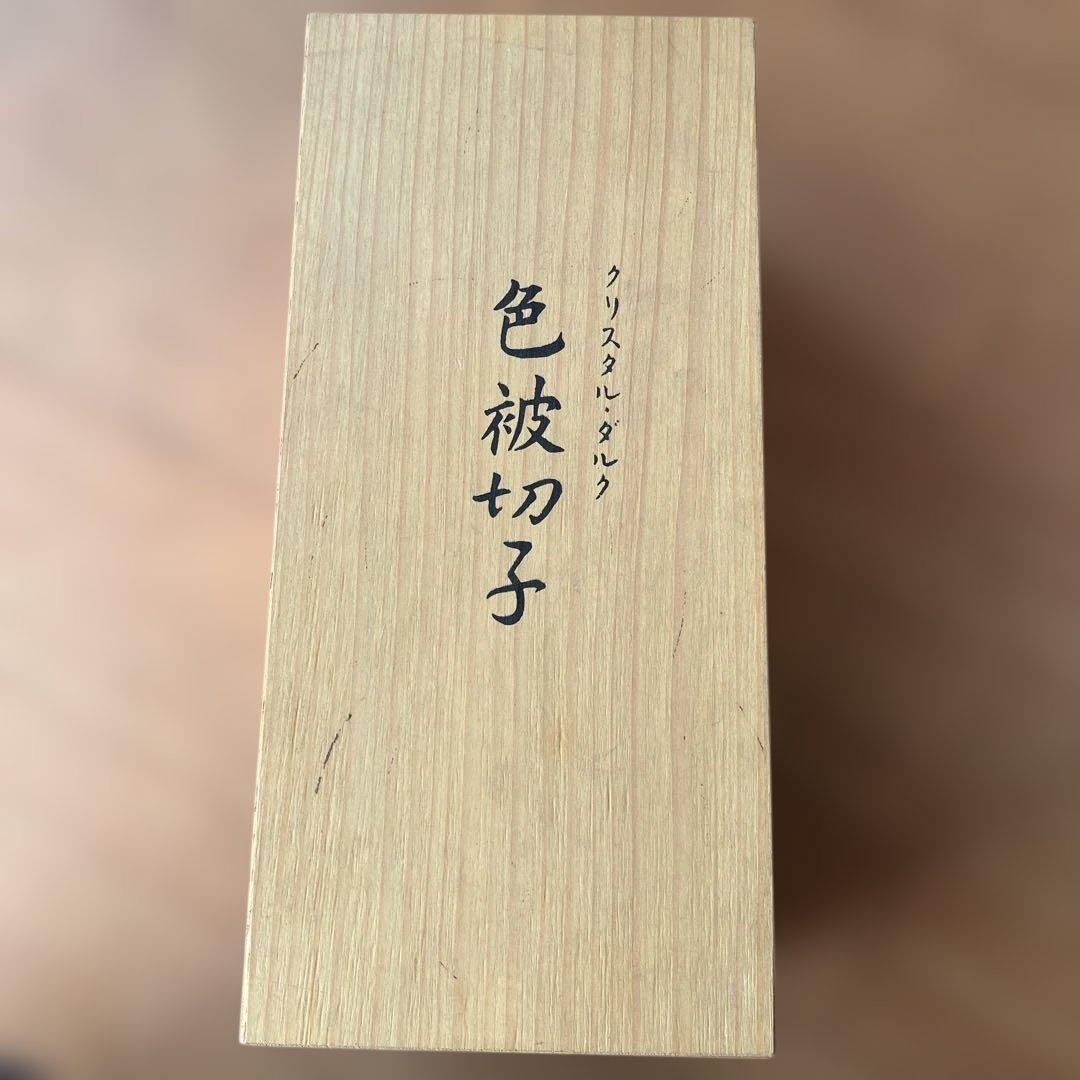 クリスタル・ダルク
色被切子